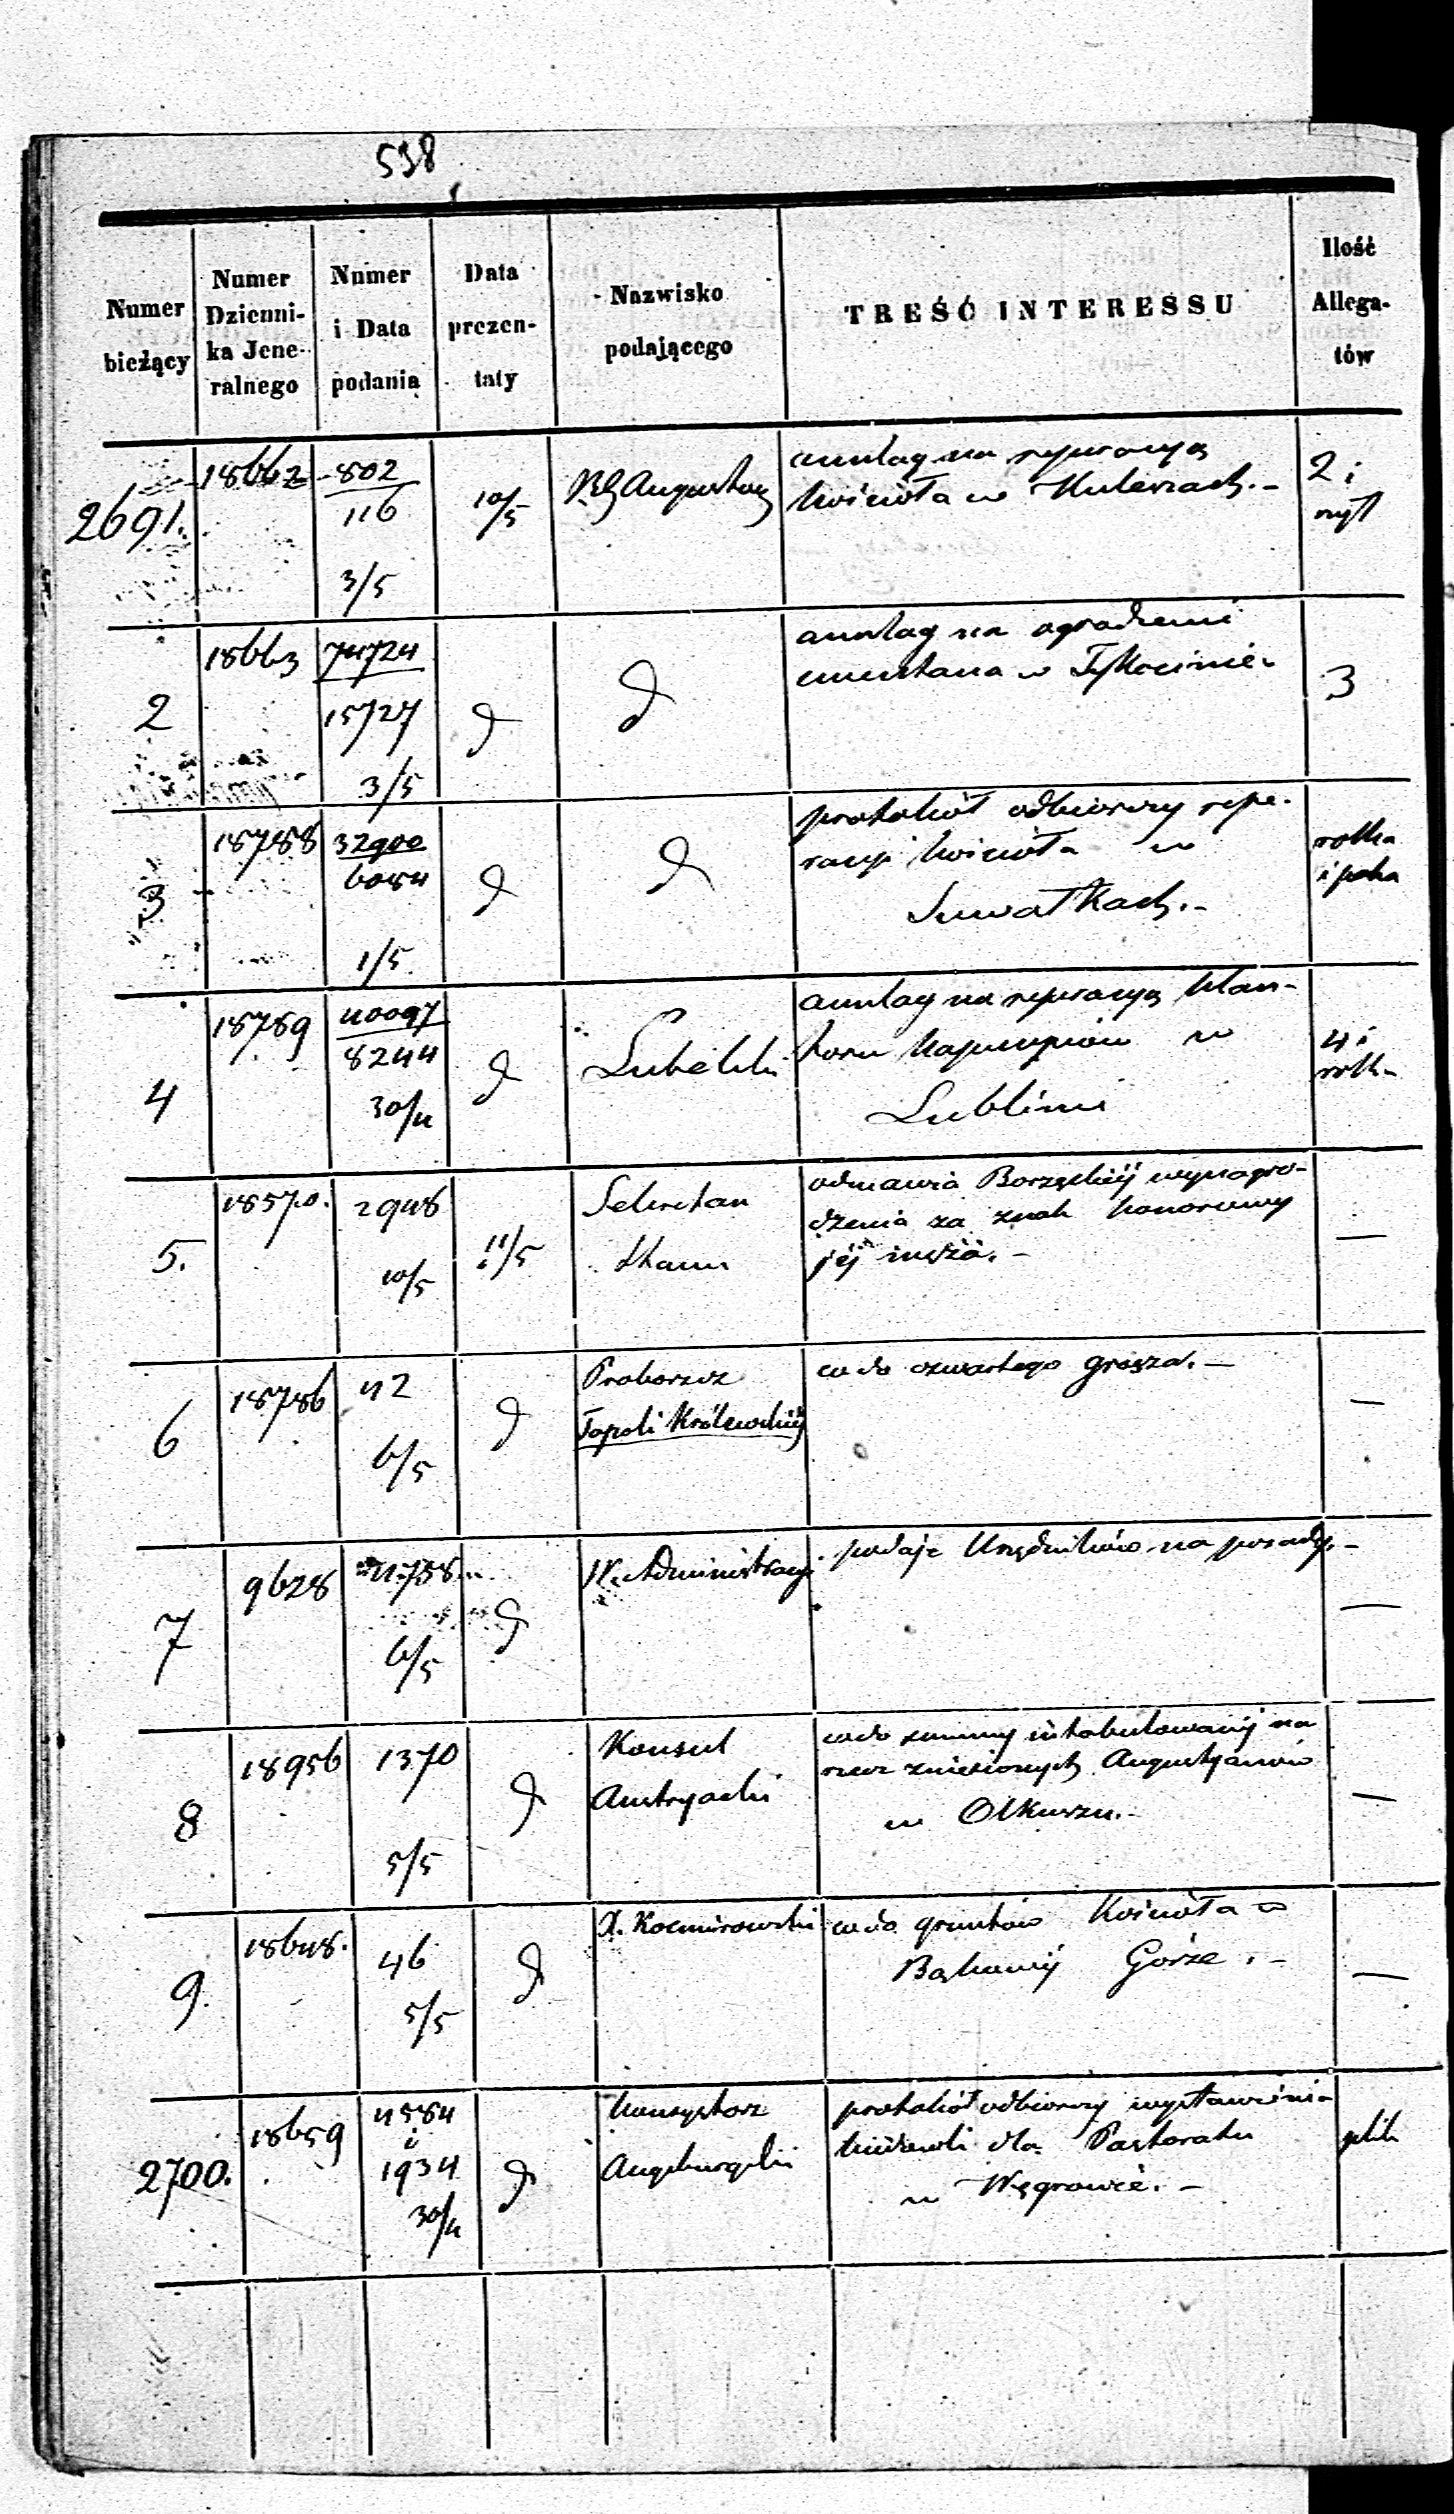 538
Numer bieżący
Numer Dzienni-ka Jene-ralnego
Numer i Data podania
Data prezen-taty
Nazwisko podającego
TREŚĆ INTERESSU
Ilość Allega-tów
2691.
18662
802
116
3/5
10/5
RG Augustow
anszlag na reperacyą
kościoła w Kuleszach.-
2 i
2
18663
74724
15727
3/5
d
d
anszlag na ogrodzenie
cmentarza w Tykocinie.
3
3
18788
32900
6054
1/5
d
d
protokół odbiorczy repe-
racyi kościoła w
Suwałkach.-
4
18789
40097
8244
30/4
d
Lubelski
anszlag na reperacyą klasz-
toru Kapucynów w
Lublinie
4 i
5.
18570.
2948
10/5
11/5
Sekretarz
Stanu
odmawia Borzęckiéj wynagro-
dzenia za znak honorowy
jéj męża.-
—
6
18786
42
6/5
d
Proboszcz
Topoli Królewskiéj
co do czwartego grosza.—
—
7
9628
4758
6/5
d
W. Administracyi
podaje Urzędników na posady.-
—
8
18956
1370
5/5
d
Konsul
Austryacki
co do summy intabulowanéj na
rzecz zniesionych Augustyanów
w Olkuszu.-
—
9.
18648.
46
5/5
d
X. Kosmirowski
co do gruntów Kościoła w
Górze.-
—
2700.
18659
4584
i
1934
30/4
d
Konsystorz
Augsburgski
protokół odbiorczy wystawienia
dla Pastoratu
w Węgrowie.-
plik